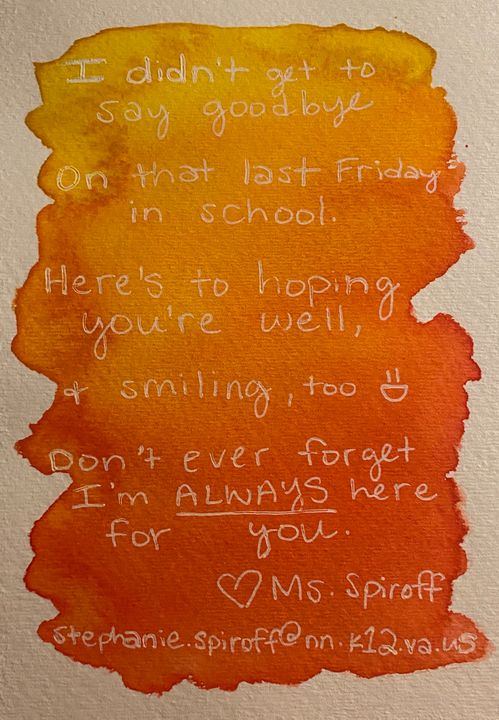 I didn't get to
say goodbye
On that last Friday
in school.
Here's to hoping
you're well,
& smiling, too
Don't ever forget
I'm ALWAYS here
for you.
♡ Ms. Spiroff
stephanie.spiroff@nn.k12.va.us